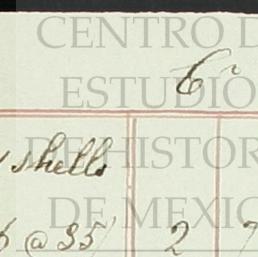 CENTRO D
ESTUDIO
6
DE HISTOR
shells
DE MEXIC
@ 35/ 2 7